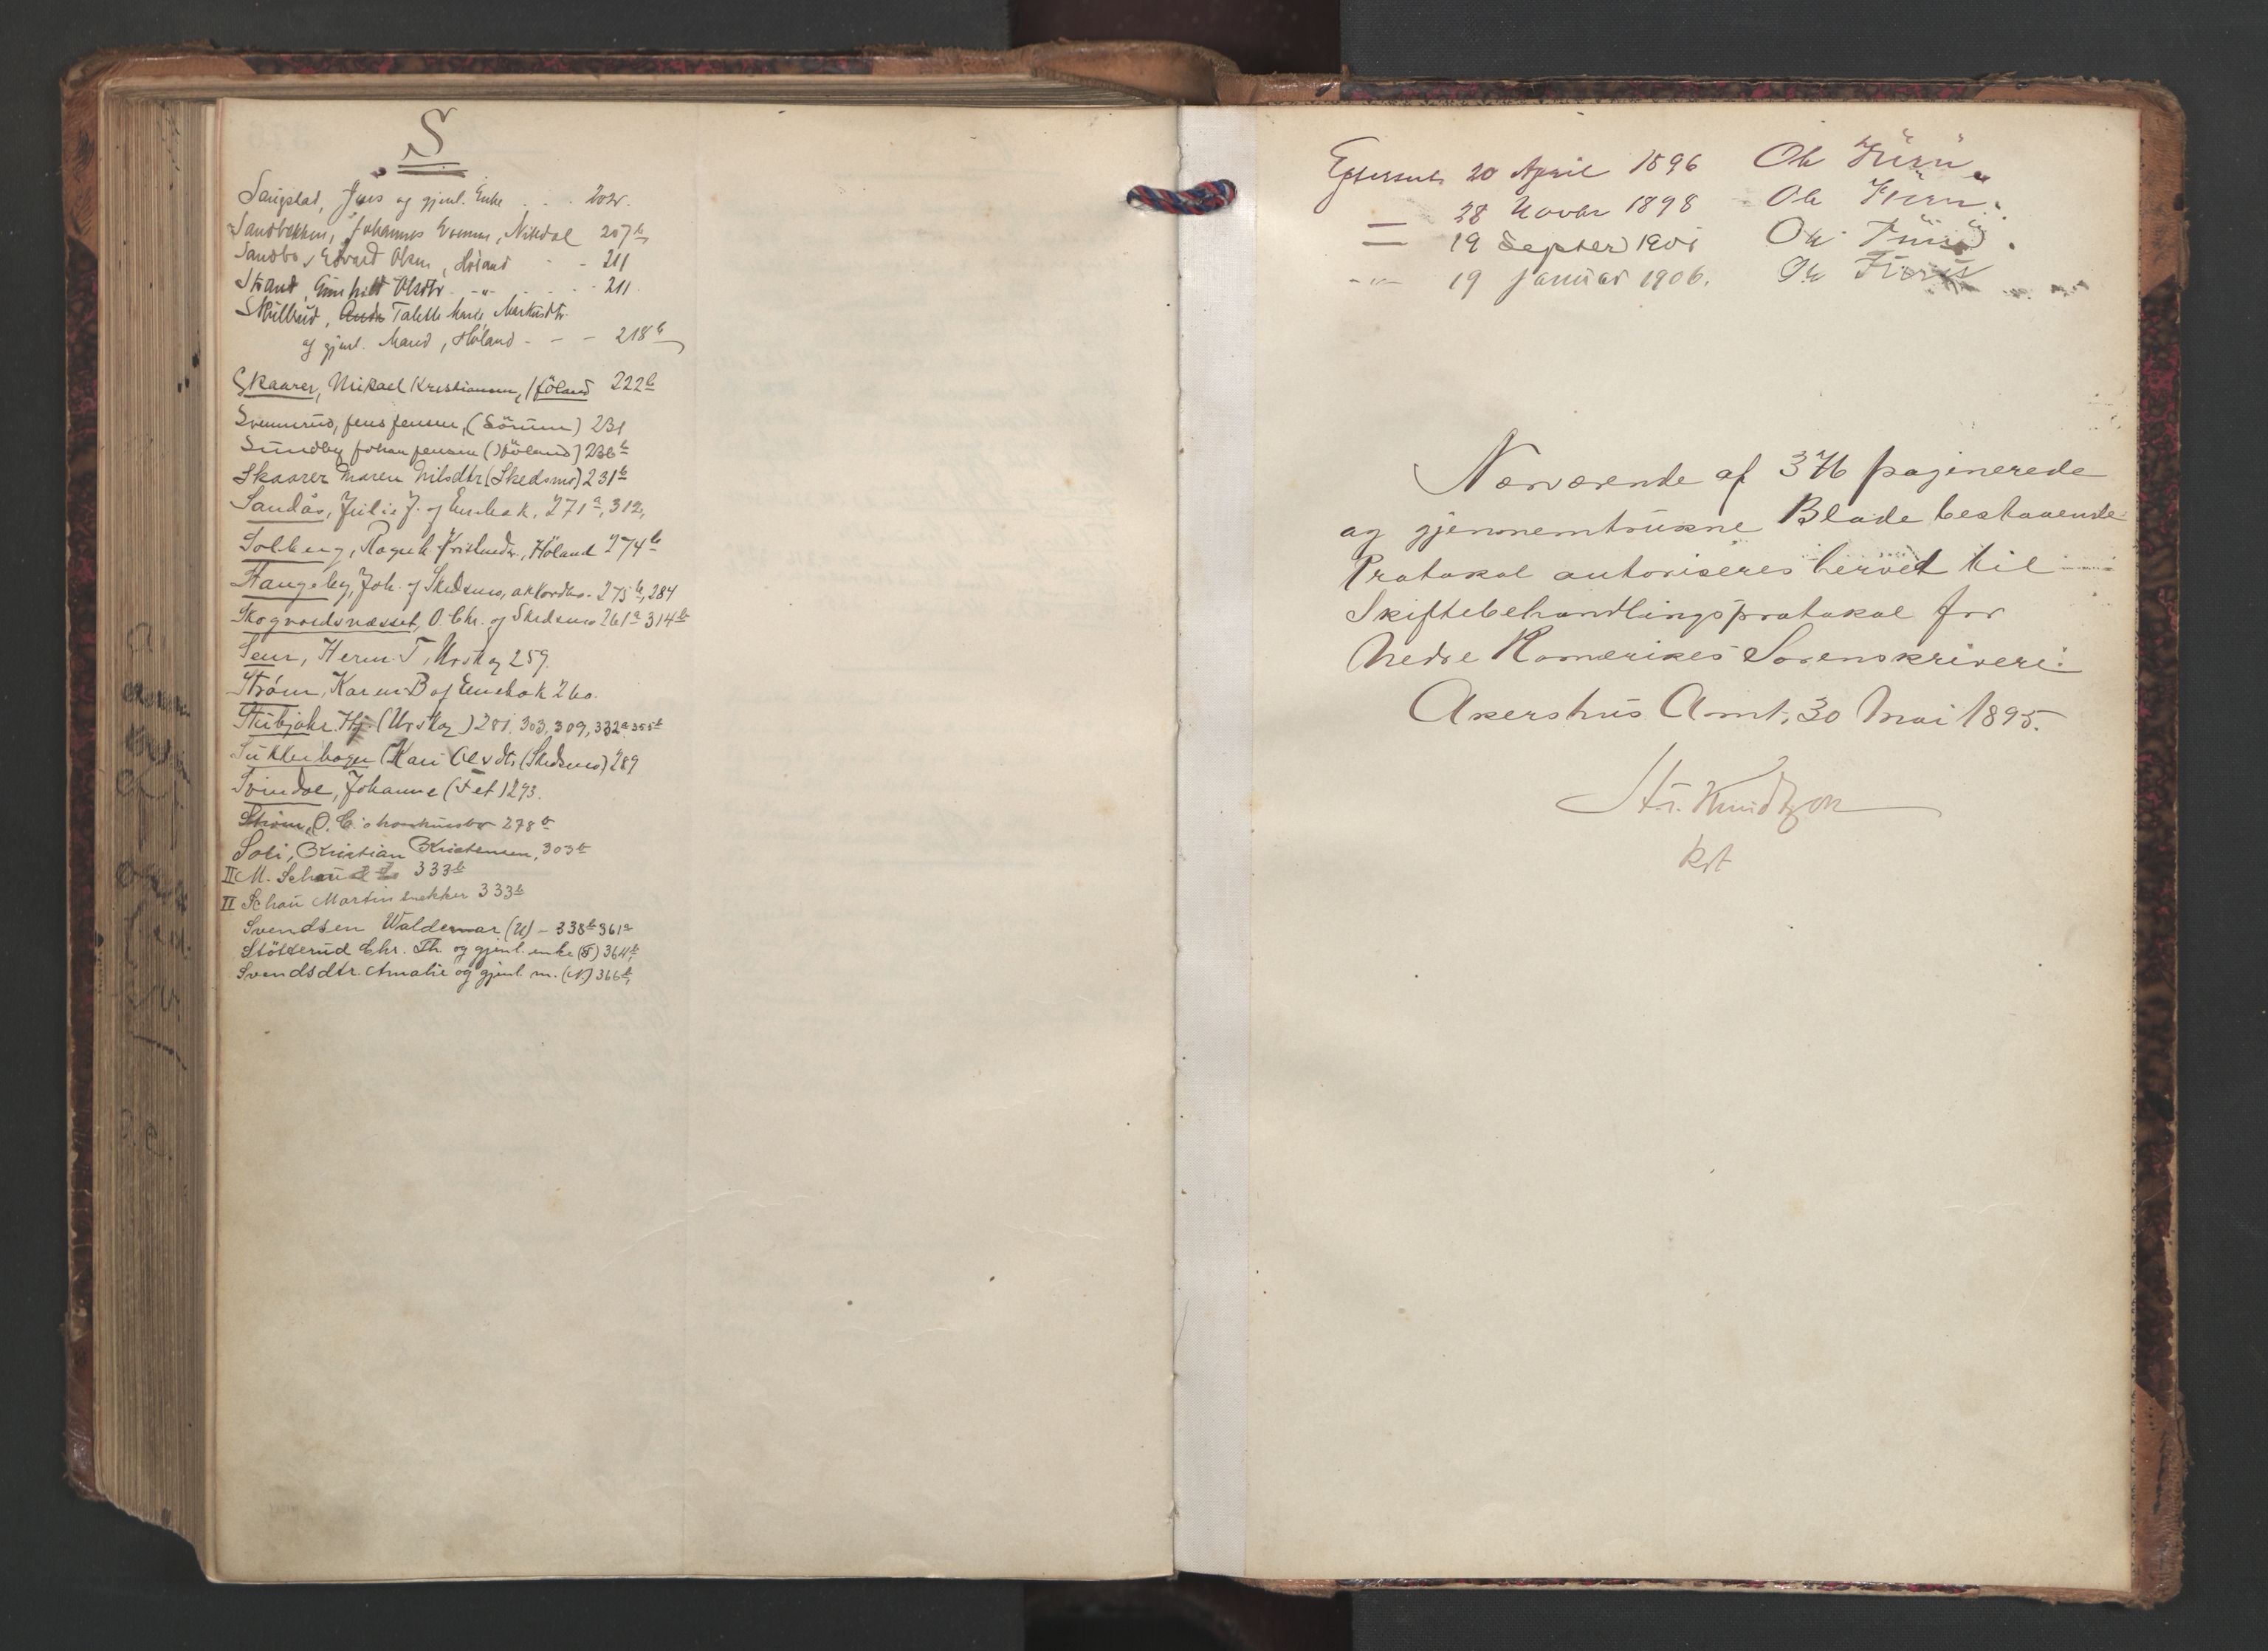 S
Saugstad, Jens og gjenl. Enke . . . 202b.
Sandbakken, Johannes Evensen, Nittedal 207b
Sandbo, Edvard Olsen, Høland - - 211
Strand, Gunhild Olsdtr. -"- . . . 211.
Skullrud, Talette Marie Markusdtr.
og gjenl. Mand, Høland - - - 218b
Skaarer, Mikael Kristiansen, Höland 222b
Svennerud, Jens Jensen, (Sörum) 231
Sundby Johan Jensen (Höland) 236b
Skaarer Maren Nilsdtr (Skedsmo) 231b
Sandås, Julie J. af Enebak, 271a, 312,
Solberg, Ragnh. Kristendr., Höland 274b
Stangeby, Joh. af Skedsmo, akkordbo. 275b, 284
Skogvoldsnæsset, O. Chr. af Skedsmo 261a 314b
Sem, Herm. T, Urskog 259.
Strøm, Karen B af Enebak 260.
Stubjahr. Hj. (Urskog) 281, 303, 309, 332a 355b
(Skedsmo) 289
Svindal, Johanne (Fet) 293.
Strøm, O. C.'s konkursbo 278b
Soli, Kristian Kristensen, 303b
II M. Schau 333b
II Schau Martin snekker 333b
Svendsen Waldemar (U) - 338b 361a
Stötterud Chr. Th. og gjenl. enke (F) 364b,
Svendsdtr. Amalie og gjenl. m. (N) 366b,
Efterseet 20 April 1896 Ole Furu.
— 28 Novbr 1898 - Ole Furu.
— 19 Septber 1901 Ole Furu.
-"- 19 Januar 1906. Ole Furu
Nærværende af 376 paginerede
og gjennemtrukne Blade bestaaende
Protokol autoriseres herved til
Skiftebehandlingsprotokol for
Nedre Romerikes Sorenskriveri.
Akershus Amt, 30 Mai 1895.
Kst